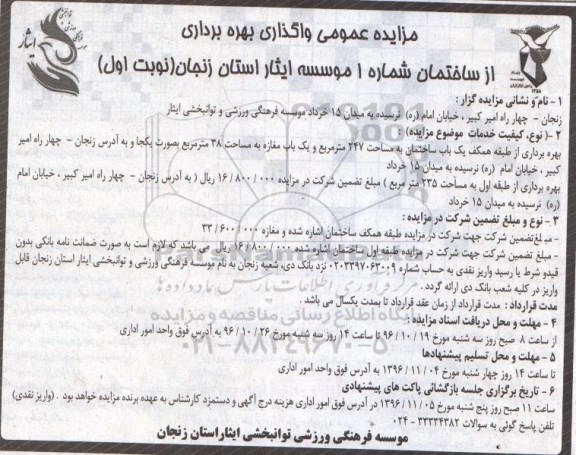 مزایده عمومی واگذاری بهره برداری
از ساختمان شماره ۱ موسسه ایثار استان زنجان(نوبت اول)
ایثار
۱ - نام و نشانی مزایده گزار :
زنجان - چهار راه امیر کبیر ، خیابان امام (ره) نرسیده به میدان ۱۵ خرداد موسسه فرهنگی ورزشی و توانبخشی ایثار
۲ -( نوع، کیفیت خدمات موضوع مزایده) :
بهره برداری از طبقه همکف یک باب ساختمان به مساحت ۲۴۷ مترمربع و یک باب مغازه به مساحت ۳۸ مترمربع بصورت یکجا و به آدرس زنجان - چهار راه امیر
کبیر ، خیابان امام (ره) نرسیده به میدان ۱۵ خرداد
بهره برداری از طبقه اول به مساحت ۲۳۵ متر مربع ) مبلغ تضمین شرکت در مزایده ۱۶/۸۰۰/۰۰۰ ریال ( به آدرس زنجان - چهار راه امیر کبیر ، خیابان امام
(ره) نرسیده به میدان ۱۵ خرداد
۳ - نوع و مبلغ تضمین شرکت در مزایده :
- مبلغ تضمین شرکت جهت شرکت در مزایده طبقه همکف ساختمان اشاره شده و مغازه ۳۳/۶۰۰/۰۰۰
- مبلغ تضمین شرکت جهت شرکت در مزایده طبقه اول ساختمان اشاره شده ۱۶/۸۰۰/۰۰۰ ریال می باشد که لازم است به صورت ضمانت نامه بانکی بدون
قیدو شرط یا رسید واریز نقدی به حساب شماره ۰۲۰۳۳۹۷۰۶۳۰۰۹ نزد بانک دی، شعبه زنجان به نام موسسه فرهنگی ورزشی و توانبخشی ایثار استان زنجان قابل
واریز در کلیه شعب بانک دی ارائه گردد .
مدت قرارداد : مدت قرارداد از زمان عقد قرارداد تا بمدت یکسال می باشد .
۴ - مهلت و محل دریافت اسناد مزایده :
از ساعت ۸ صبح روز سه شنبه مورخ ۹۶/۱۰/۱۹ تا ساعت ۱۴ روز سه شنبه مورخ ۹۶/۱۰/۲۶ به آدرس فوق واحد امور اداری
۵ - مهلت و محل تسلیم پیشنهادها
تا ساعت ۱۴ روز چهار شنبه مورخ ۱۳۹۶/۱۱/۰۴ به آدرس فوق واحد امور اداری
۶ - تاریخ برگزاری جلسه بازگشائی پاکت های پیشنهادی
ساعت ۱۱ صبح روز پنج شنبه مورخ ۱۳۹۶/۱۱/۰۵ در آدرس فوق امور اداری هزینه درج آگهی و دستمزد کارشناس به عهده برنده مزایده خواهد بود . (واریز نقدی)
تلفن پاسخ گوئی به سوالات ۳۳۳۲۴۳۸۲ - ۰۲۴
موسسه فرهنگی ورزشی توانبخشی ایثاراستان زنجان